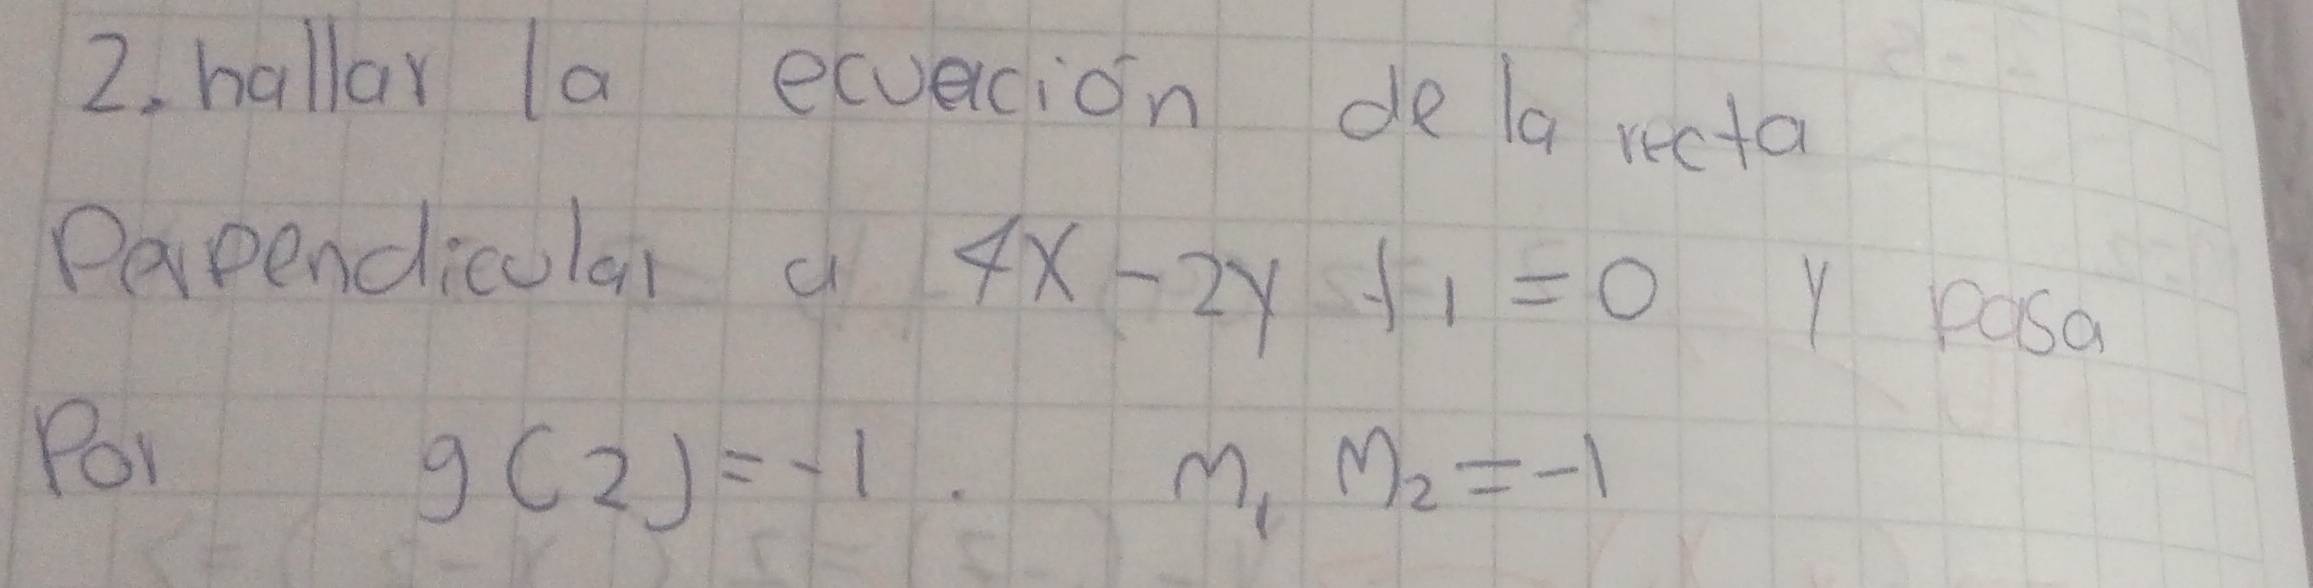 2. hallar la ecuación de la recta
Perpendicular a 4x - 2y + 1 = 0 y pasa
Por g(2) = -1. m₁ m₂ = -1